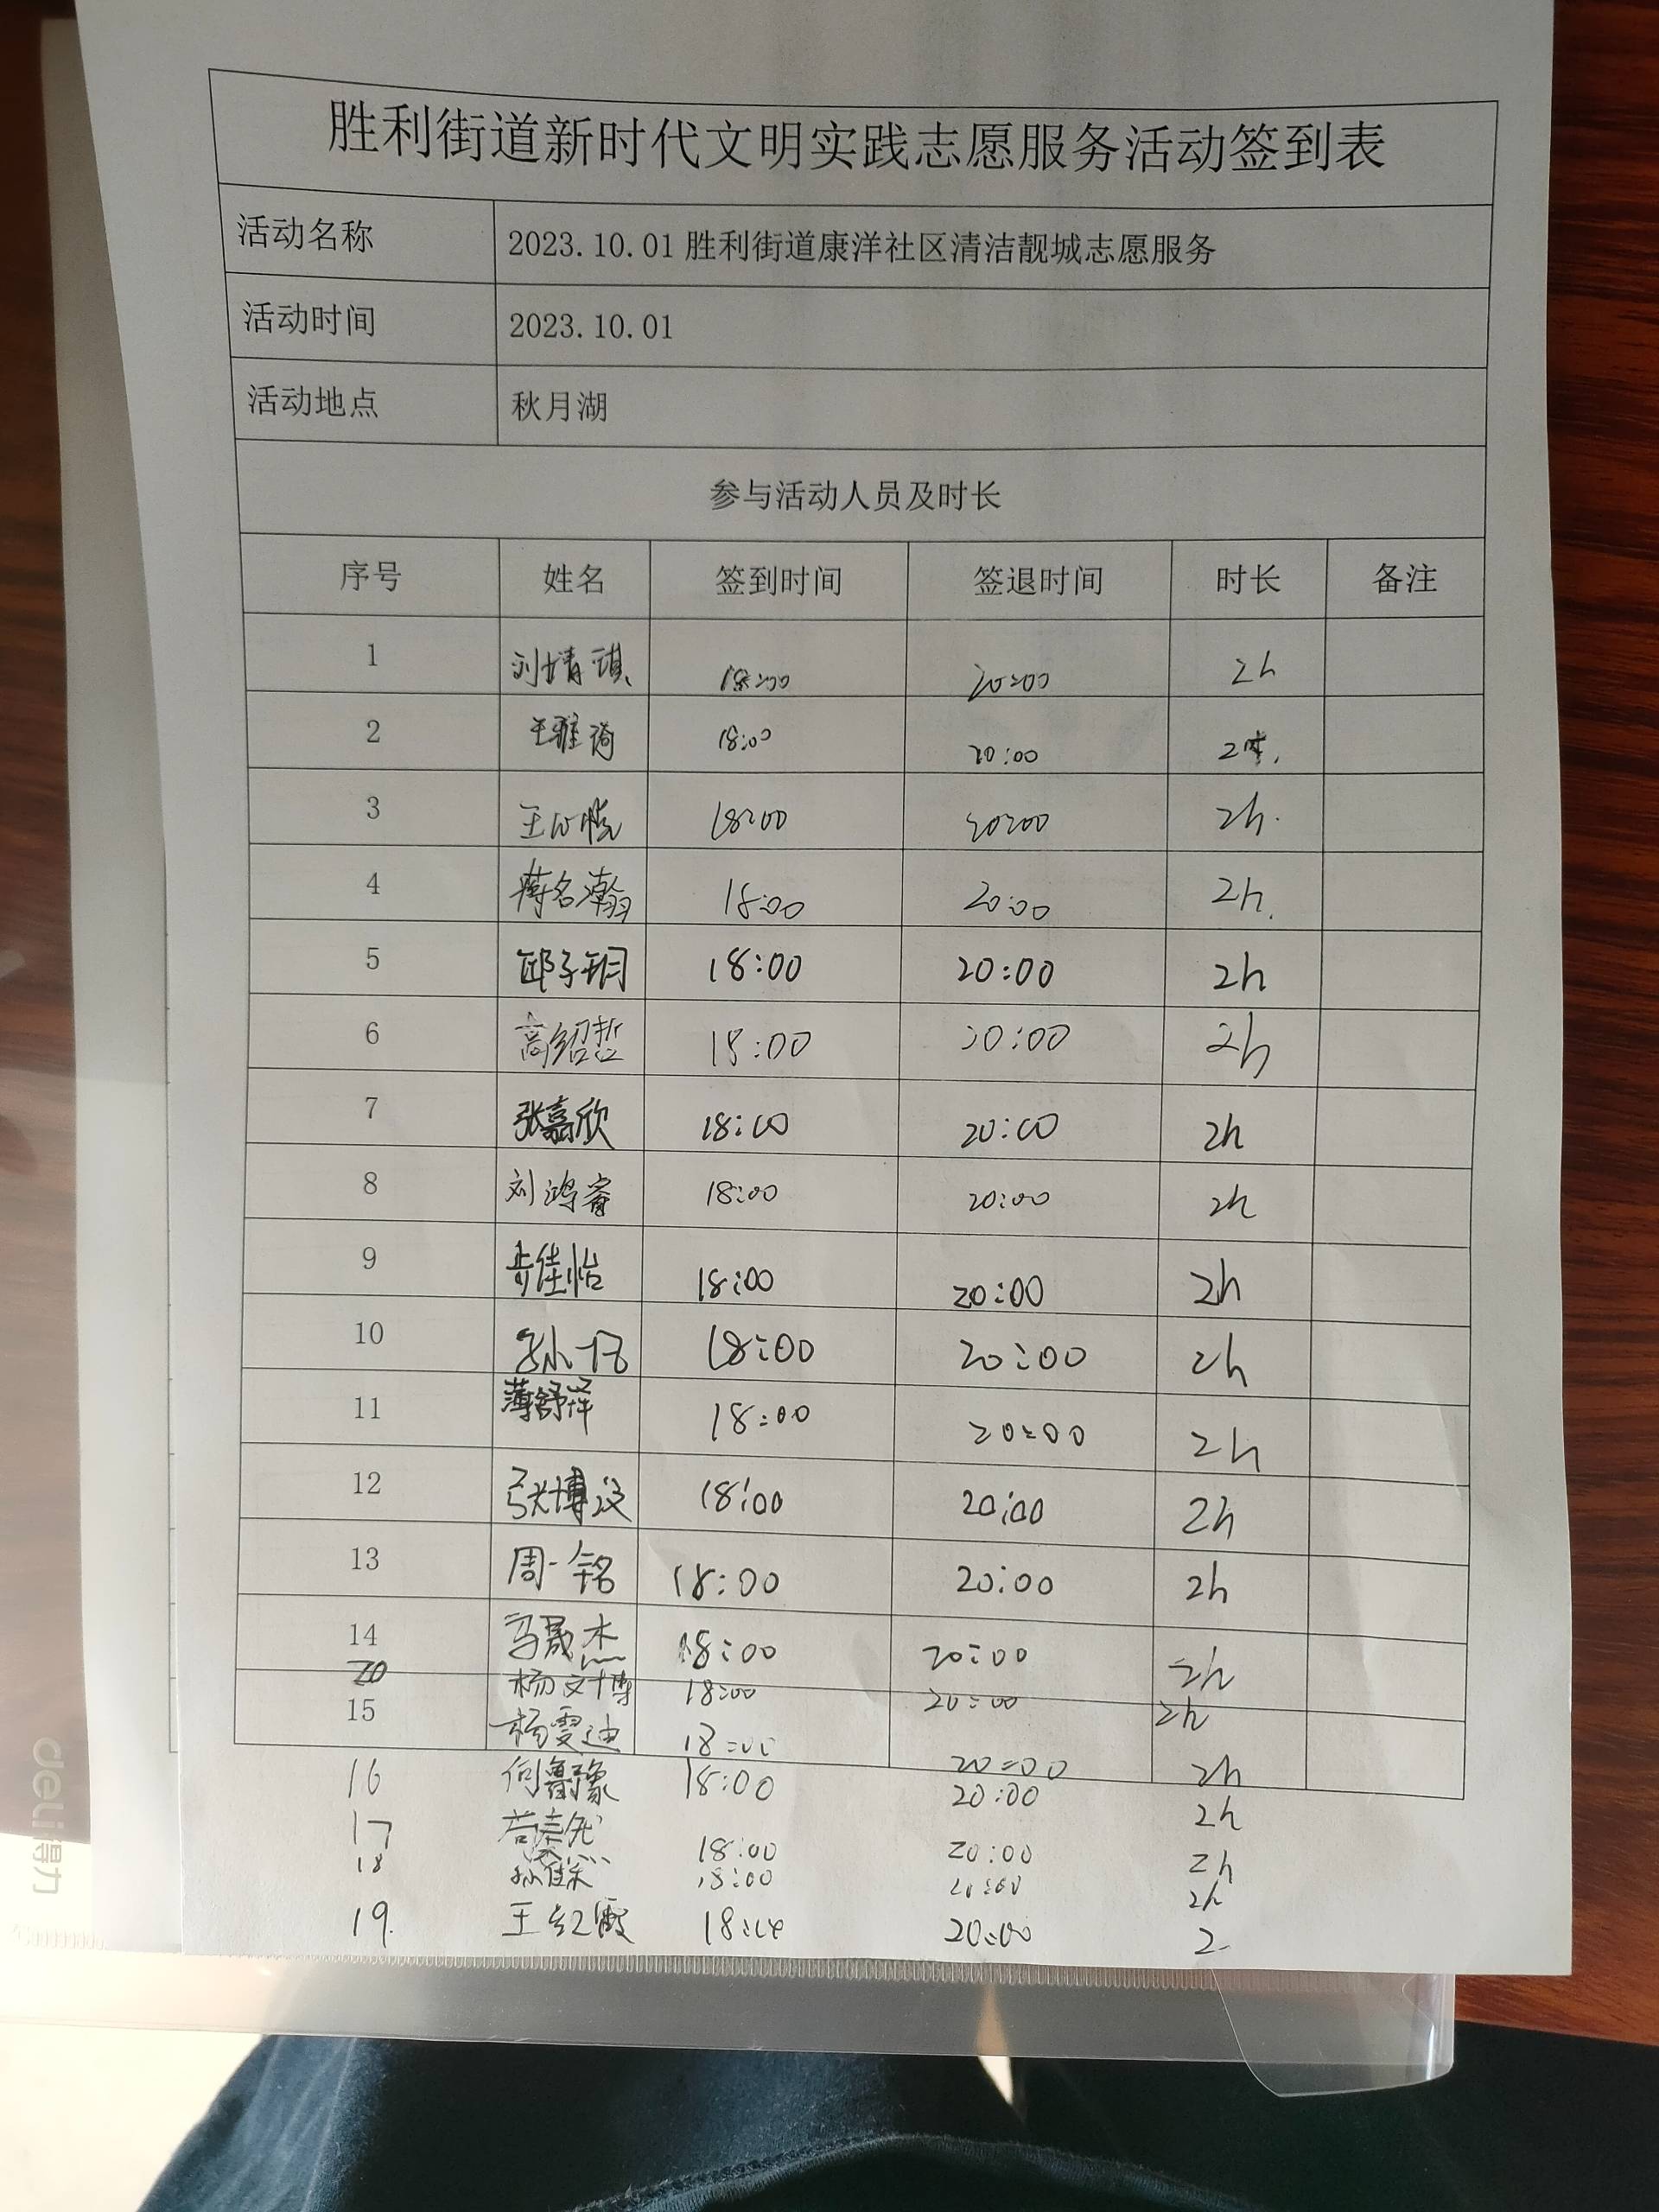 胜利街道新时代文明实践志愿服务活动签到表
活动名称 2023.10.01 胜利街道康洋社区清洁靓城志愿服务
活动时间 2023.10.01
活动地点 秋月湖
参与活动人员及时长
序号 姓名 签到时间 签退时间 时长 备注
1 刘婧琪 18:00 20:00 2h
2 王雅琦 18:00 20:00 2时.
3 王心悦 18:00 20:00 2h.
4 蒋名瀚 18:00 20:00 2h.
5 邱子玥 18:00 20:00 2h
6 高绍哲 18:00 20:00 2h
7 张嘉欣 18:00 20:00 2h
8 刘鸿睿 18:00 20:00 2h
9 步佳怡 18:00 20:00 2h
10 孙一 18:00 20:00 2h
11 薄舒泽 18:00 20:00 2h
12 张博 18:00 20:00 2h
13 周一铭 18:00 20:00 2h
14 冯晟杰 18:00 20:00 2h
20 杨文博 18:00 20:00 2h
15 杨雯迪 18:00 20:00 2h
16 何鲁豫 18:00 20:00 2h
17 18:00 20:00 2h
18 孙佳 18:00 20:00 2h
19. 王红霞 18:00 20:00 2
deli得力